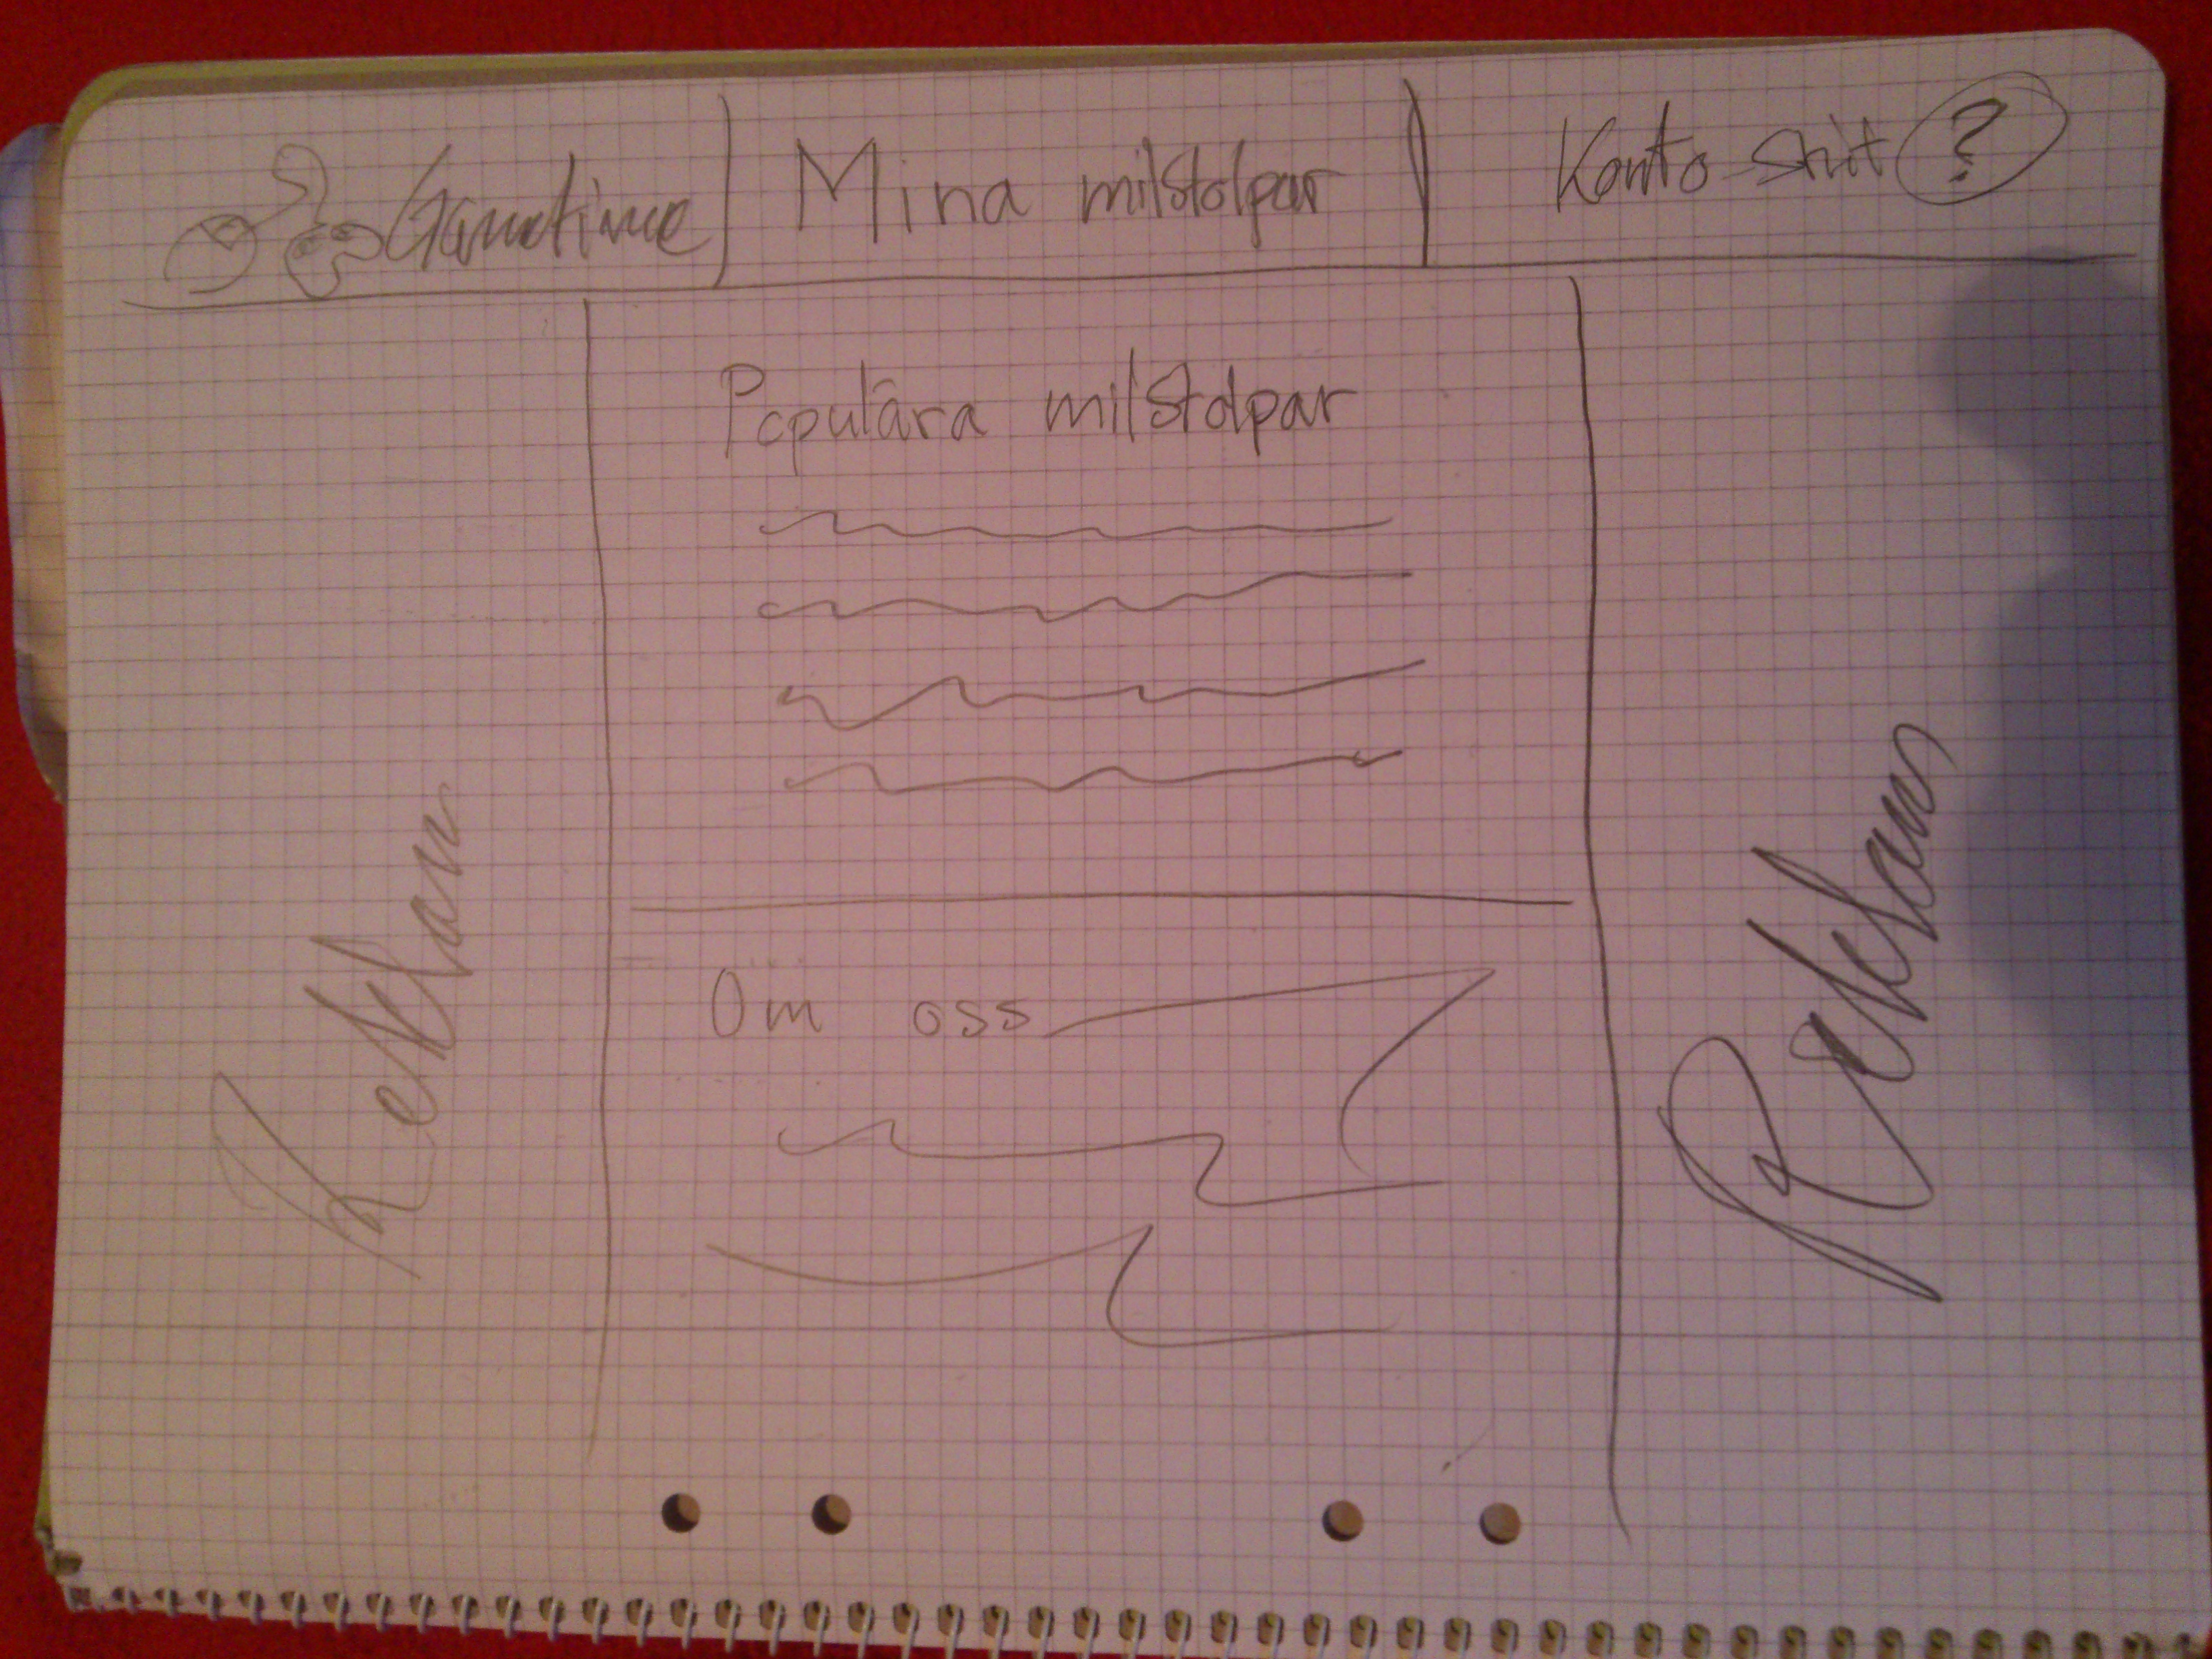 Gametime
Mina milstolpar
Konto-skit ?
Populära milstolpar
Om oss
Reklam
Reklam